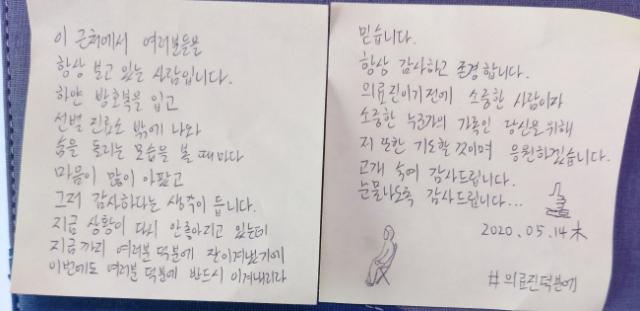 이 근처에서 여러분들을
항상 보고 있는 사람입니다.
하얀 방호복을 입고
선별 진료소 밖에 나와
숨을 돌리는 모습을 볼 때마다
마음이 많이 아팠고
그저 감사하다는 생각이 듭니다.
지금 상황이 다시 안좋아지고 있는데
지금까지 여러분 덕분에 잘이겨냈기에
이번에도 여러분 덕분에 반드시 이겨내리라
믿습니다.
항상 감사하고 존경합니다.
의료진이기전에 소중한 사람이자
소중한 누군가의 가족인 당신을 위해
저 또한 기도할것이며 응원하겠습니다.
고개 숙여 감사드립니다.
눈물나도록 감사드립니다...
2020.05.14木
#의료진덕분에